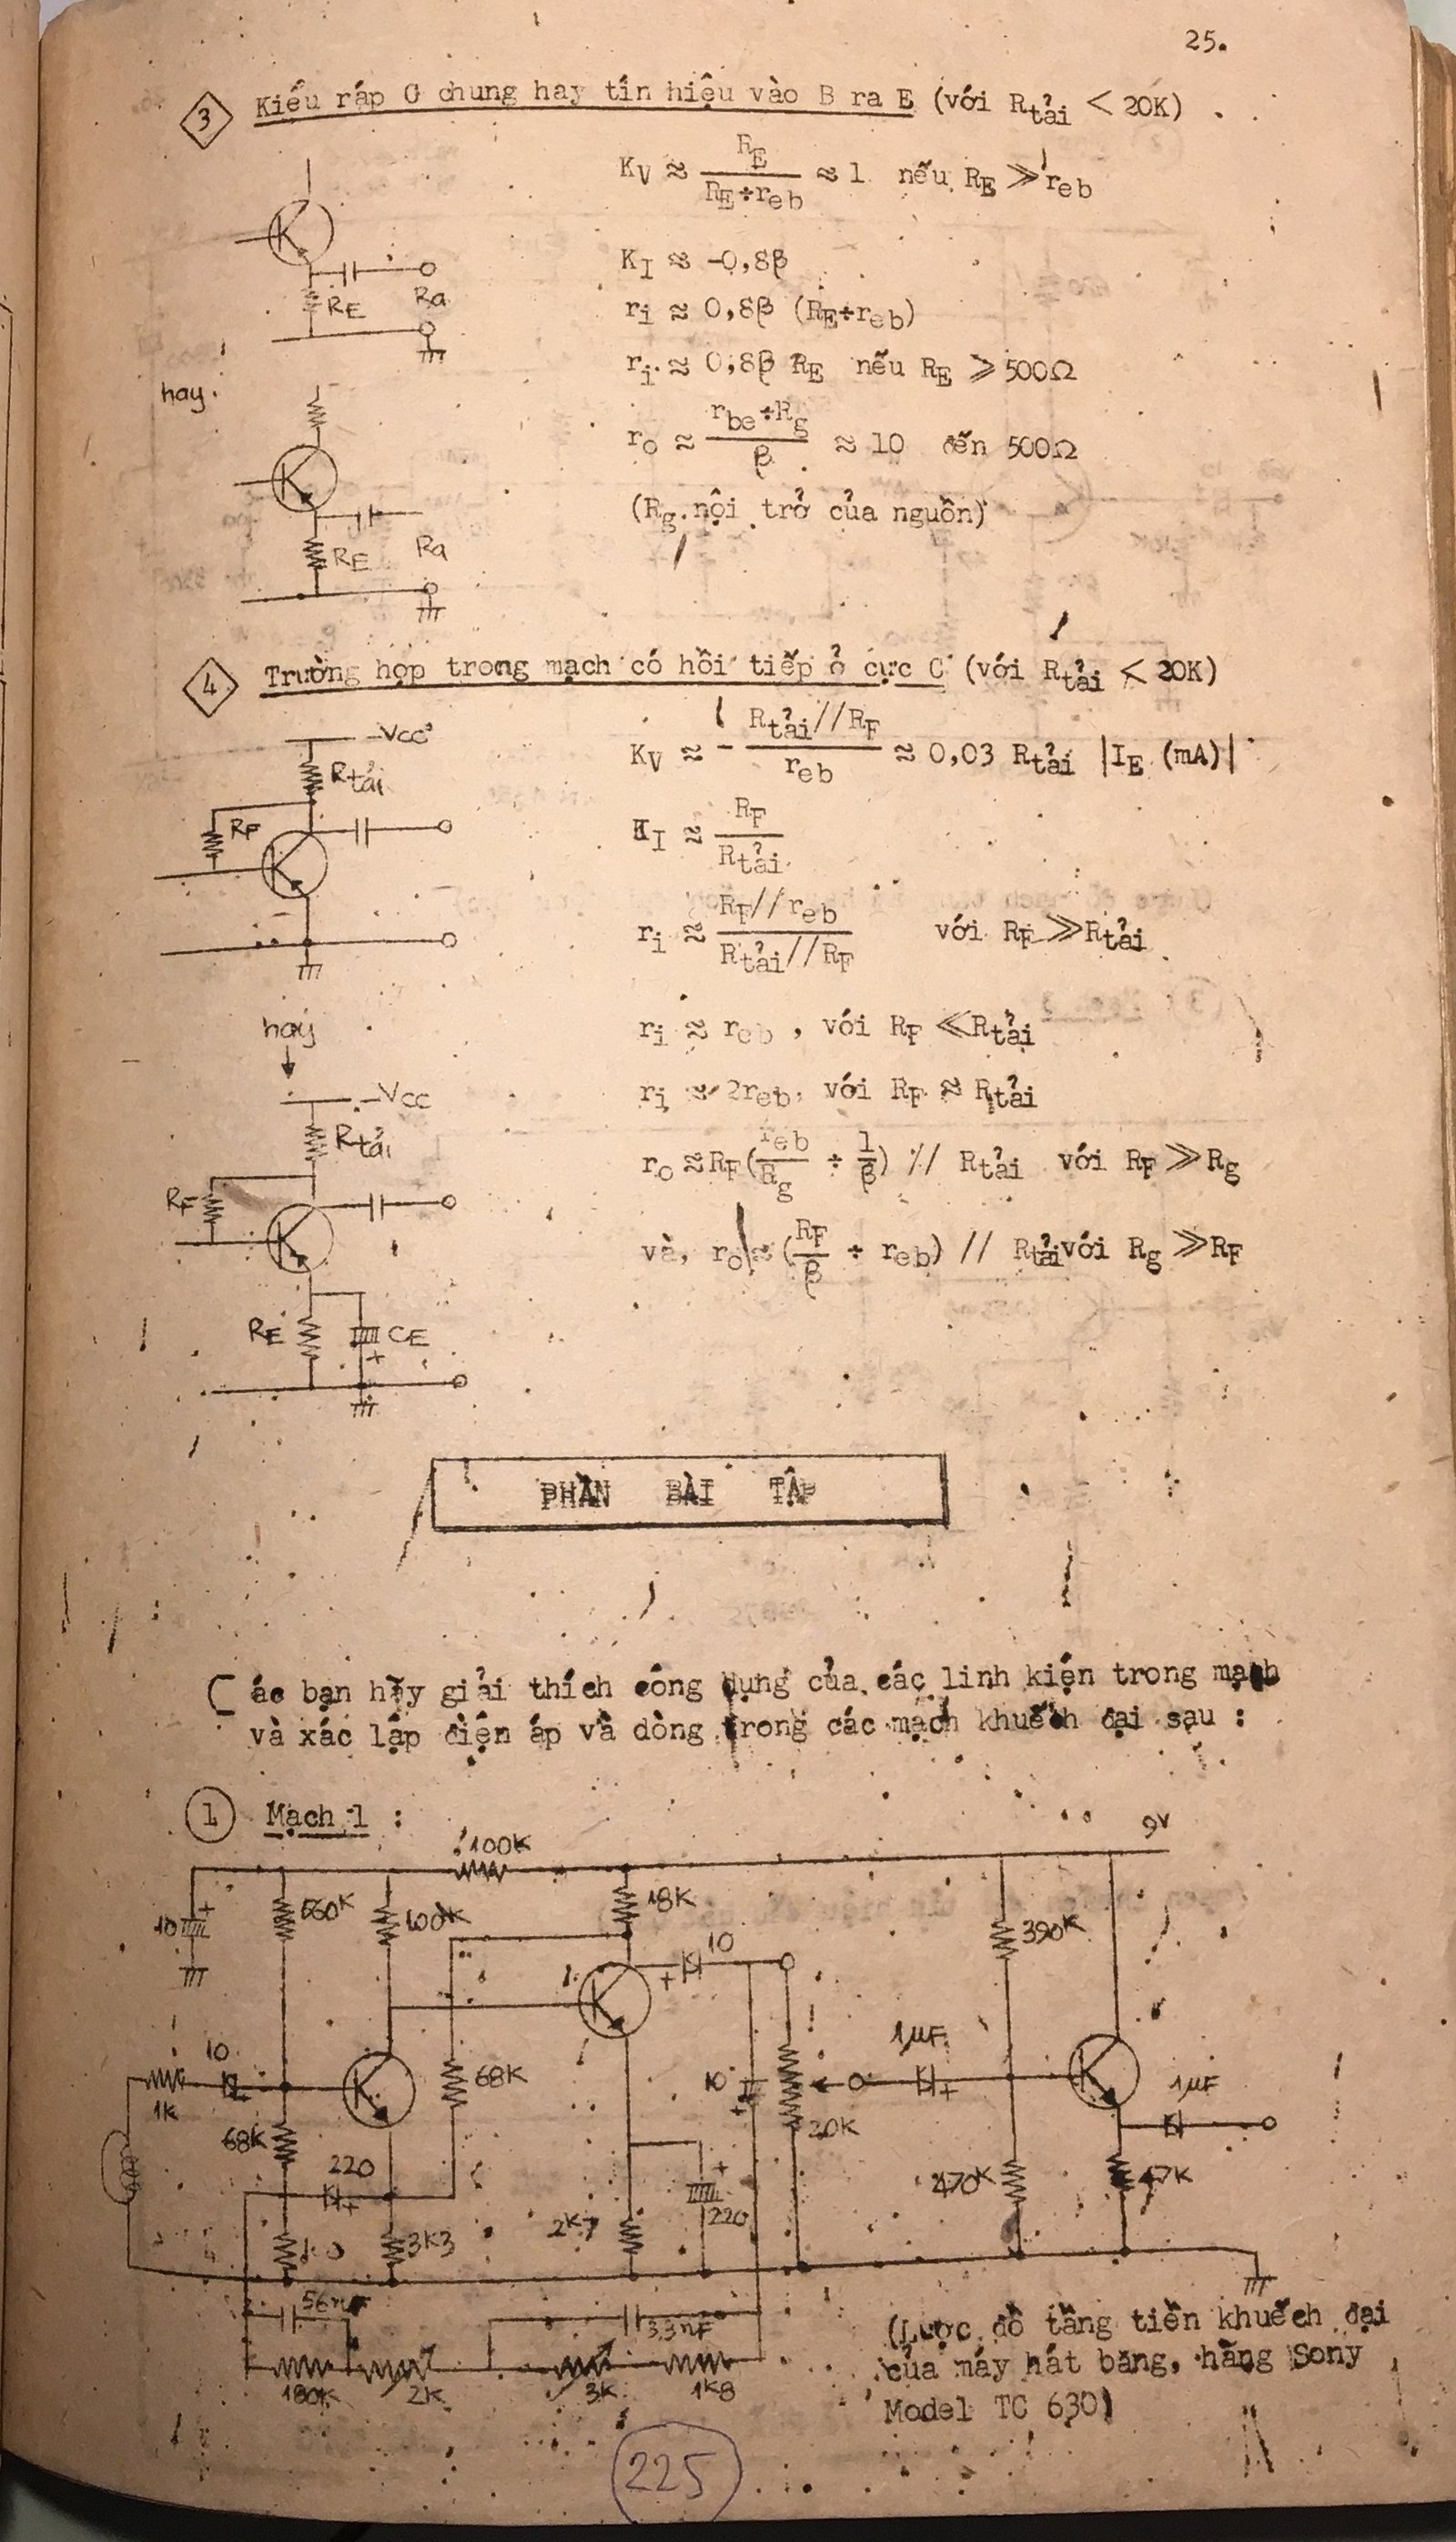 25.
3 Kiểu ráp C chung hay tín hiệu vào B ra E (với Rtải < 20K)
KV ≈ RE / RE÷reb ≈ 1 nếu RE ≫ reb
KI ≈ -0,8β
RE Ra
ri ≈ 0,8β (RE÷reb)
ri ≈ 0,8β RE nếu RE ⩾ 500Ω
hay
ro ≈ rbe÷Rg / β ≈ 10 đến 500Ω
(Rg nội trở của nguồn)
RE Ra
4 Trường hợp trong mạch có hồi tiếp ở cực C (với Rtải < 20K)
-VCC
Rtải
RF
KV ≈ - Rtải//RF / reb ≈ 0,03 Rtải |IE (mA)|
KI ≈ RF / Rtải
ri ≈ RF//reb / Rtải//RF với RF ≫ Rtải
hay
ri ≈ reb , với RF ≪ Rtải
-VCC
ri ≈ 2reb, với RF ≈ Rtải
Rtải
ro ≈ RF(reb/Rg ÷ 1/β) // Rtải với RF ≫ Rg
RF
và, ro ≈ (RF/β ÷ reb) // Rtải với Rg ≫ RF
RE CE
+
PHẦN BÀI TẬP
Các bạn hãy giải thích công dụng của các linh kiện trong mạch
và xác lập điện áp và dòng trong các mạch khuếch đại sau :
1 Mạch 1 :
9V
100K
10 +
560K
100K
18K
390K
10
+
10
1K
68K
1µF
+
1µF
10
+
20K
68K
220
+
470K
47K
3K3
2K7
+
220
56nF
3,3nF
180K
2K
3K
1K8
(Lược đồ tầng tiền khuếch đại
của máy hát băng, hãng Sony
Model TC 630)
225